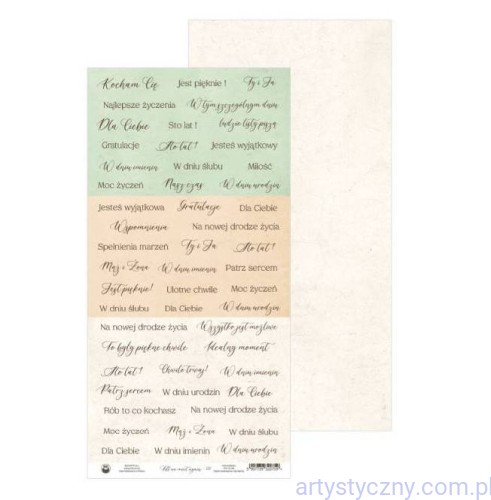 Kocham Cię Jest pięknie ! Ty i Ja
Najlepsze życzenia W tym szczególnym dniu
Dla Ciebie Sto lat ! ludzie listy piszą
Gratulacje Sto lat ! Jesteś wyjątkowy
W dniu imienin W dniu ślubu Miłość
Moc życzeń Nasz czas W dniu urodzin
Jesteś wyjątkowa Gratulacje Dla Ciebie
Wspomnienia Na nowej drodze życia
Spełnienia marzeń Ty i Ja Sto lat !
Mąż i Żona W dniu imienin Patrz sercem
Jest pięknie! Ulotne chwile Moc życzeń
W dniu ślubu Dla Ciebie W dniu urodzin
Na nowej drodze życia Wszystko jest możliwe
To były piękne chwile Idealny moment
Sto lat ! Chwilo trwaj! W dniu imienin
Patrz sercem W dniu urodzin Dla Ciebie
Rób to co kochasz Na nowej drodze życia
Moc życzeń Mąż i Żona W dniu ślubu
Dla Ciebie W dniu imienin W dniu urodzin
artystyczny.com.pl